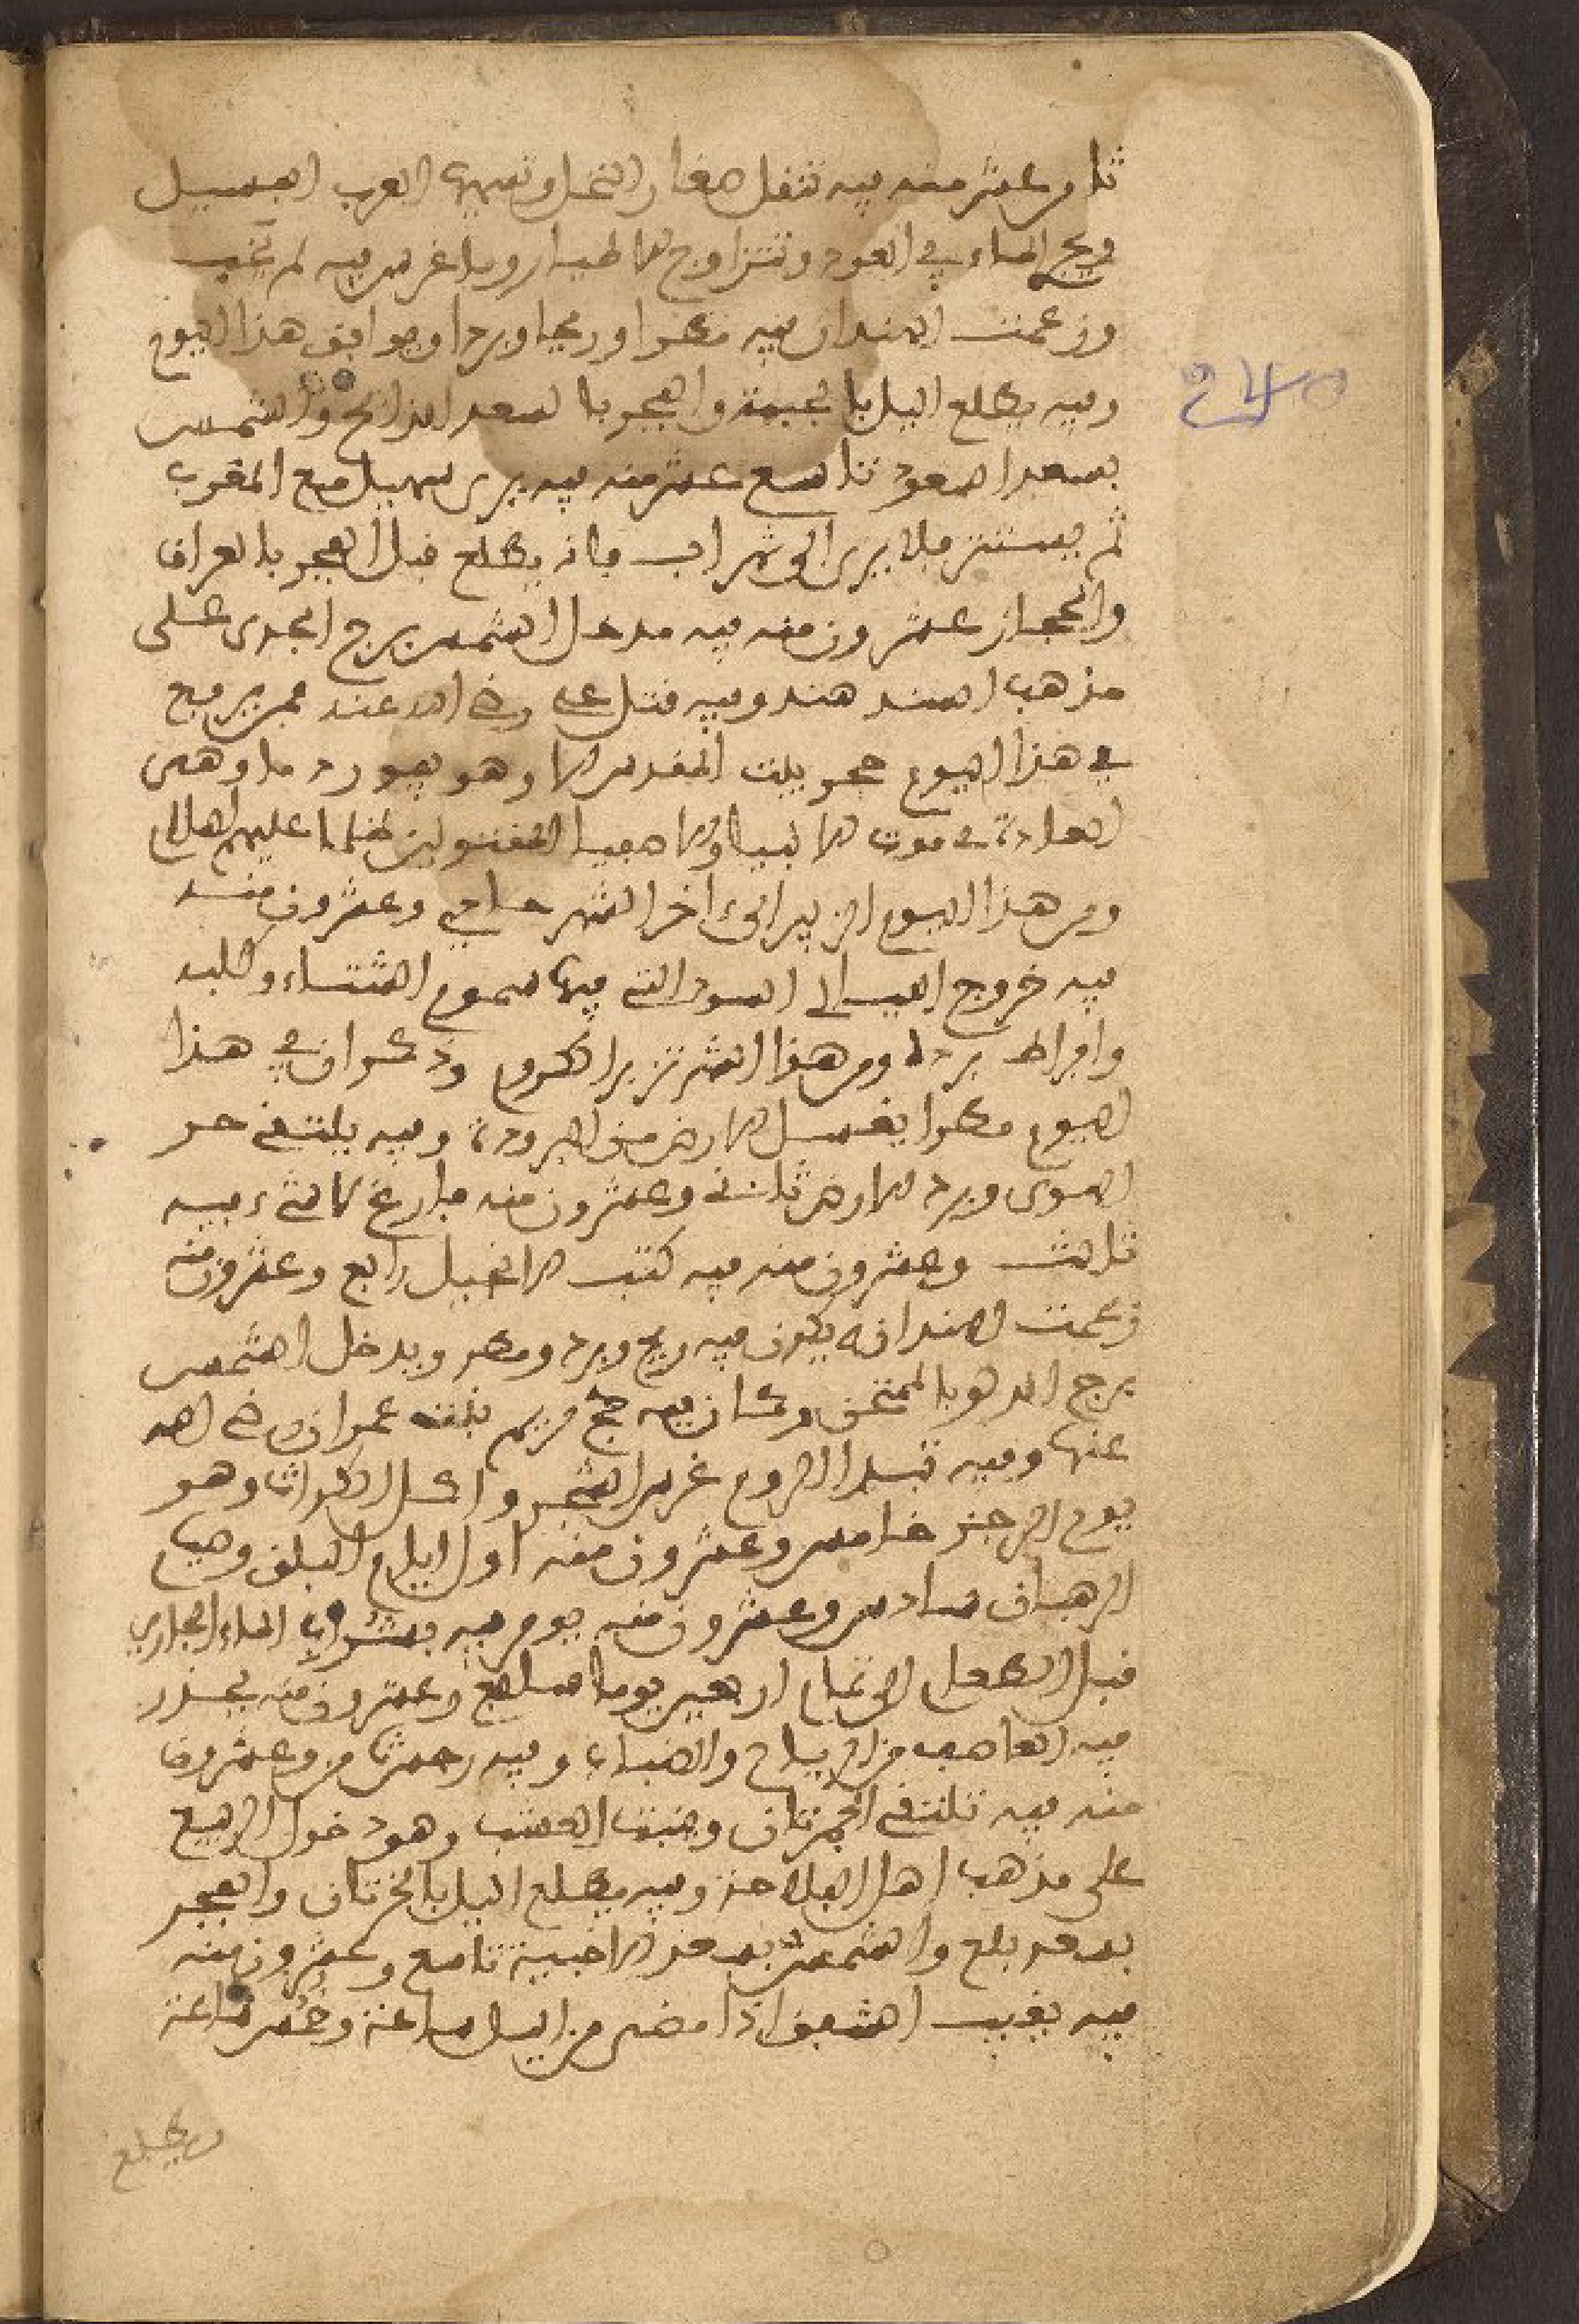 ثامن عشر منه فيه تنقل صغار النخل وتسميها العرب الفسيل
ويجري الماء في العود وتتزاوج الأطيار وما غرس فيه لم يخب
وزعمت الهند ان فيه مطرا وريحا وبردا ويوافق هذا اليوم
وفيه يطلع اليل بالجبهة والفجر بالسعد الذابح والشمس
بسعد السعود تاسع عشر منه فيه يرى سهيل مع المغرب
ثم يستتر فلا يرى الى شهر اب فانه يطلع قبل الفجر بالعراق
والحجاز عشرون منه فيه مدخل الشمس برج الجدي على
مذهب السند هند وفيه قتل علي رضي الله عنه
في هذا اليوم حجر بيت المقدس الا وهو يفور دما وهي
العادة في موت الانبياء والاصفيا المقتولين ظلما عليهم السلام
ومن هذا اليوم الى اخر الشهر حادي وعشرون منه
فيه خروج الليالي السود التي فيها سموم الشتاء وكلبه
وافراط برده ومن هذا الشهر تزبر الكروم وذكر ان في هذا
اليوم مطرا يغسل الارض من البرودة وفيه يلتقي حر
الهوى وبرد الارض ثاني وعشرون منه فارغ لا شيء فيه
ثالث وعشرون منه فيه كتب الانجيل رابع وعشرون منه
زعمت الهند انه يكون فيه ريح وبرد ومطر ويدخل الشمس
برج الدلو بالممتحن وكان فيه حج مريم بنت عمران رضي الله
عنها وفيه تبدا الروم غرس الشجر واكل الكراث وهو
يوم الرجز خامس وعشرون منه اول ايام البلق وصيام
الرهبان سادس وعشرون منه يومر فيه بشراب الماء الجاري
قبل الطعام الى تمام اربعين يوما سابع وعشرون منه يحذر
فيه العاصف من الرياح والضباب وفيه رحمة ثامن وعشرون
منه فيه تلتقي الجمرتان وينبت العشب وهو دخول الربيع
على مذهب اهل الفلاحة وفيه يطلع اليل بالخرتان والفجر
بسعد بلع والشمس بسعد الاخبية تاسع وعشرون منه
فيه يغيب الشفق اذا مضى من اليل ساعة وخمس ساعة
ويطلع